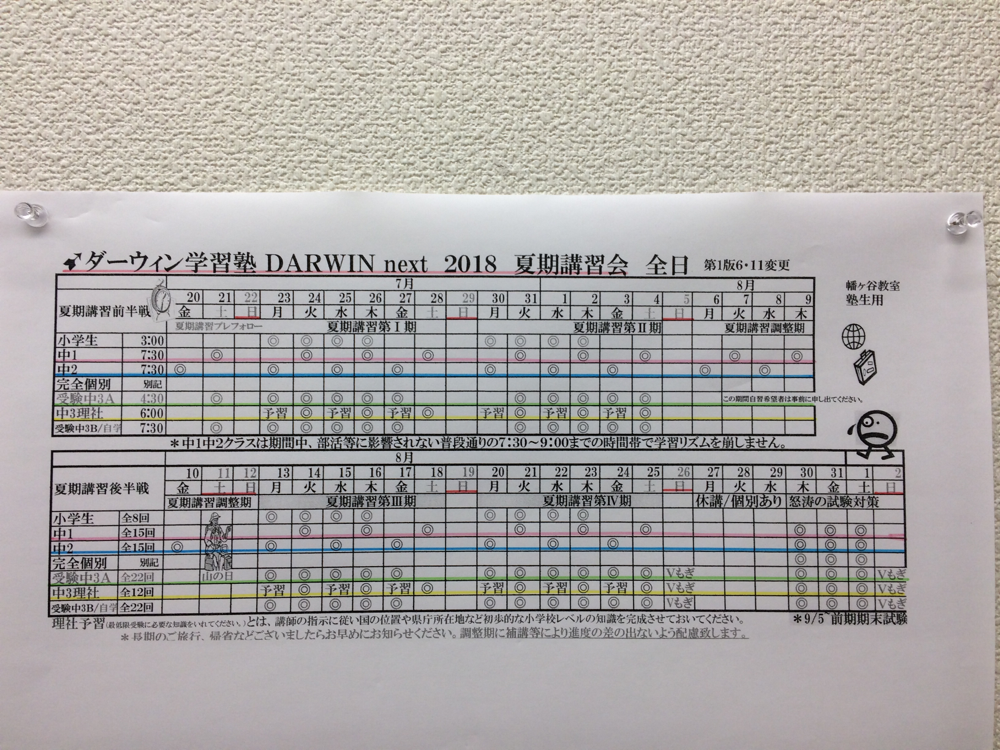 ダーウィン学習塾 DARWIN next 2018 夏期講習会 全日 第1版6・11変更
幡ヶ谷教室
塾生用
7月 8月
20 21 22 23 24 25 26 27 28 29 30 31 1 2 3 4 5 6 7 8 9
夏期講習前半戦 金 土 日 月 火 水 木 金 土 日 月 火 水 木 金 土 日 月 火 水 木
夏期講習プレフォロー 夏期講習第Ⅰ期 夏期講習第Ⅱ期 夏期講習調整期
小学生 3:00 ◎ ◎ ◎ ◎ ◎ ◎ ◎ ◎
中1 7:30 ◎ ◎ ◎ ◎ ◎ ◎ ◎ ◎ ◎
中2 7:30 ◎ ◎ ◎ ◎ ◎ ◎ ◎ ◎ ◎
完全個別 別記
受験中3A 4:30 ◎ ◎ ◎ ◎ ◎ ◎ ◎ ◎ ◎ ◎ ◎ この期間自習希望者は事前に申し出てください。
中3理社 6:00 予習 ◎ 予習 ◎ 予習 ◎ 予習 ◎ 予習 ◎ 予習 ◎
受験中3B/自学 7:30 ◎ ◎ ◎ ◎ ◎ ◎ ◎ ◎ ◎ ◎ ◎
＊中1中2クラスは期間中、部活等に影響されない普段通りの7:30～9:00までの時間帯で学習リズムを崩しません。
8月
10 11 12 13 14 15 16 17 18 19 20 21 22 23 24 25 26 27 28 29 30 31 1 2
夏期講習後半戦 金 土 日 月 火 水 木 金 土 日 月 火 水 木 金 土 日 月 火 水 木 金 土 日
夏期講習調整期 夏期講習第Ⅲ期 夏期講習第Ⅳ期 休講/個別あり 怒涛の試験対策
小学生 全8回 ◎ ◎ ◎ ◎ ◎ ◎ ◎ ◎
中1 全15回 ◎ ◎ ◎ ◎ ◎ ◎ ◎ ◎ ◎
中2 全15回 ◎ ◎ ◎ ◎ ◎ ◎ ◎ ◎ ◎
完全個別 別記 ◎ ◎ ◎
受験中3A 全22回 山の日 ◎ ◎ ◎ ◎ ◎ ◎ ◎ ◎ ◎ ◎ ◎ Vもぎ ◎ ◎ ◎ Vもぎ
中3理社 全12回 予習 ◎ 予習 ◎ 予習 ◎ 予習 ◎ 予習 ◎ 予習 ◎ Vもぎ ◎ ◎ ◎ Vもぎ
受験中3B/自学 全22回 ◎ ◎ ◎ ◎ ◎ ◎ ◎ ◎ ◎ ◎ ◎ Vもぎ ◎ ◎ ◎ Vもぎ
理社予習(最低限受験に必要な知識をいれてください。)とは、講師の指示に従い国の位置や県庁所在地など初歩的な小学校レベルの知識を完成させておいてください。 ＊9/5~前期期末試験
＊長期のご旅行、帰省などございましたらお早めにお知らせください。調整期に補講等により進度の差の出ないよう配慮致します。